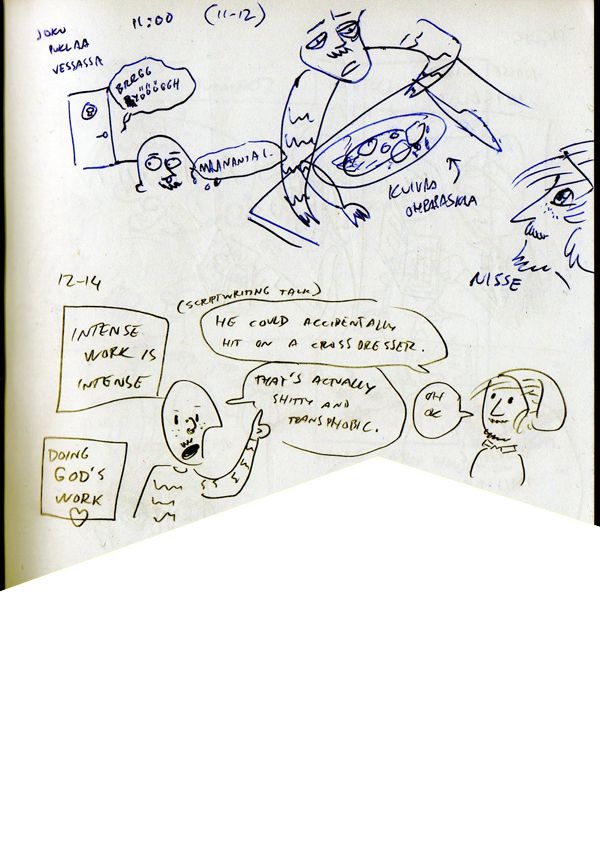 11:00 (11-12)
JOKU
VESSASSA
BRRGG
MAANANTAI.
KUIVAA
NISSE
12-14
(SCRIPTWRITING TALK)
INTENSE
WORK IS
INTENSE
HE COULD ACCIDENTALLY
HIT ON A CROSSDRESSER.
THAT'S ACTUALLY
SHITTY AND
TRANSPHOBIC.
OH
OK
DOING
GOD'S
WORK